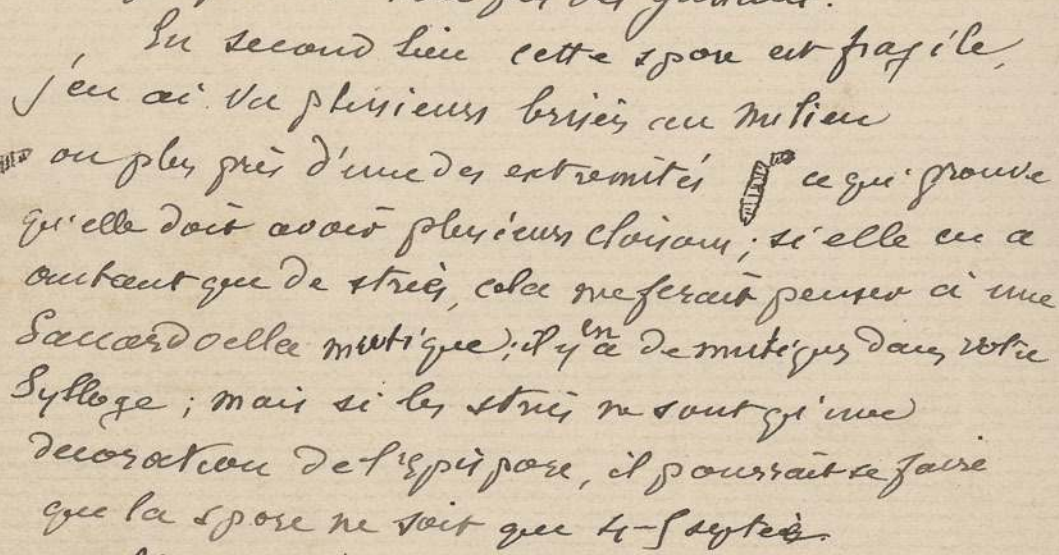 des
En second lieu cette spore est fragile,
j'en ai vu plusieurs brisées au milieu
ou plus près d'une des extremités ce qui prouve
qu'elle doit avoir plusieurs cloisons; si elle en a
autant que de stries, cela me ferait penser à une
Saccardoella mutique; il y en a de mutiques dans votre
Sylloge; mais si les stries ne sont qu'une
decoration de l'Epispore, il pourrait se faire
que la spore ne soit que 4-5 septée.